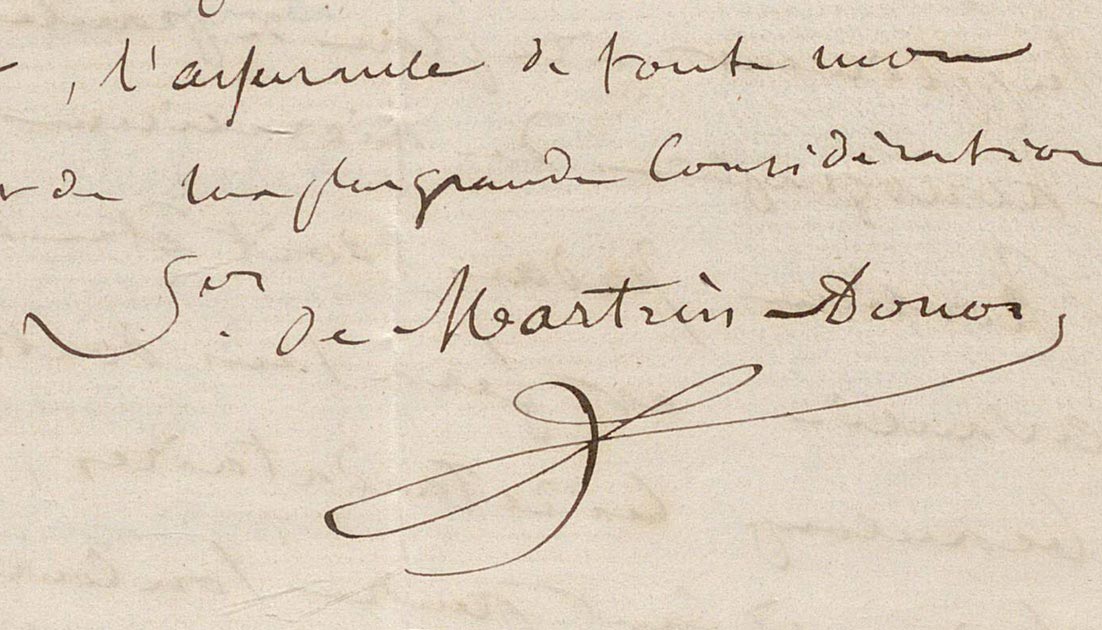 , l'assurance de toute mon
de ma plus grande Considération
de Martrin Donos